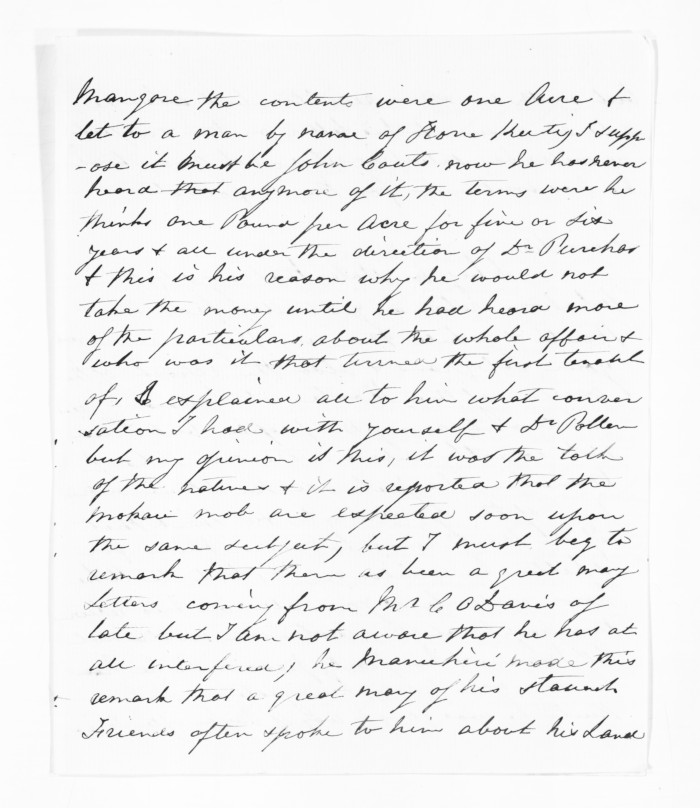 Mangore the contents were one Acre &
let to a man by name of Hone Kutij I supp
-ose it must be John Couts. now he has never
heard that anymore of it, the terms were he
thinks one Pound per Acre for five or six
years & all under the direction of Dr Purchas
& this is his reason why he would not
take the money until he had heard more
of the particulars about the whole affair &
who was it that turned the first tenant
of, I explained all to him what conver
sation I had with yourself & Dr Pollen
but my opinion is this, it was the talk
of the natives & it is reported that the
mob are expected soon upon
the same subject, but I must beg to
remark that there as been a great many
Letters coming from Mr C O Davis of
late but I am not aware that he has at
all interfered; he Manuhiri made this
remark that a great many of his staunch
Friends often spoke to him about his Land